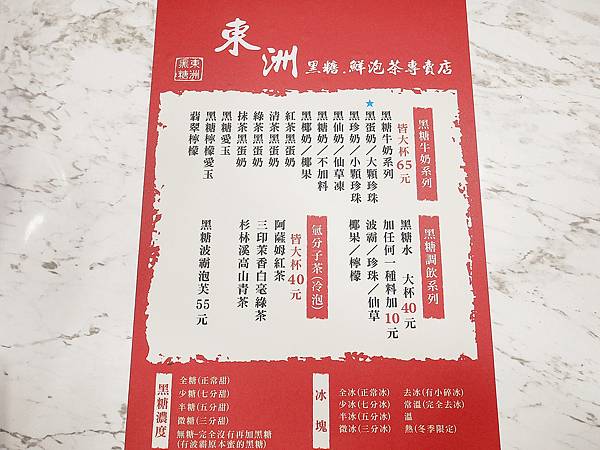 東洲
黑糖.鮮泡茶專賣店
東洲黑糖
黑糖牛奶系列
皆大杯65元
黑糖牛奶系列
★黑蛋奶/大顆珍珠
黑珍奶/小顆珍珠
黑仙奶/仙草凍
黑糖奶/不加料
黑椰奶/椰果
紅茶黑蛋奶
清茶黑蛋奶
綠茶黑蛋奶
抹茶黑蛋奶
黑糖愛玉
黑糖檸檬愛玉
翡翠檸檬
黑糖調飲系列
黑糖水 大杯40元
加任何一種料加10元
波霸/珍珠/仙草
椰果/檸檬
氣分子茶(冷泡)
皆大杯40元
阿薩姆紅茶
三印茉香白毫綠茶
杉林溪高山青茶
黑糖波霸泡芙55元
黑糖濃度
全糖(正常甜)
少糖(七分甜)
半糖(五分甜)
微糖(三分甜)
無糖-完全沒有再加黑糖
(有波霸原本蜜的黑糖)
冰塊
全冰(正常冰) 去冰(有小碎冰)
少冰(七分冰) 常溫(完全去冰)
半冰(五分冰) 溫
微冰(三分冰) 熱(冬季限定)